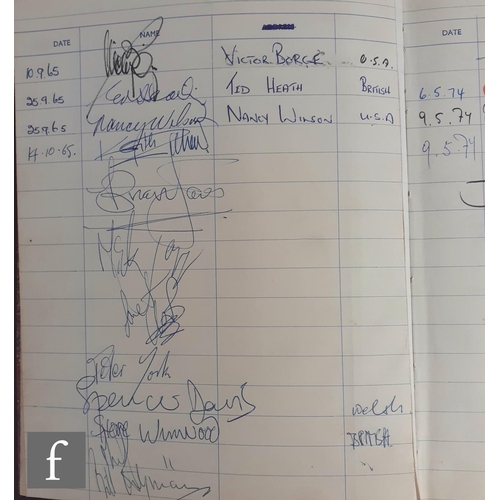 DATE NAME ADDRESS DATE
10.9.65 VICTOR BORGE U.S.A.
25.9.65 TED HEATH BRITISH 6.5.74
25.9.65 Nancy Wilson NANCY WILSON U.S.A 9.5.74
17.10.65. Keith 9.5.74
Brian Jones
Mick
Peter York
Spencer Davis welsh
Steve Winwood BRITISH
Bill Wyman
f